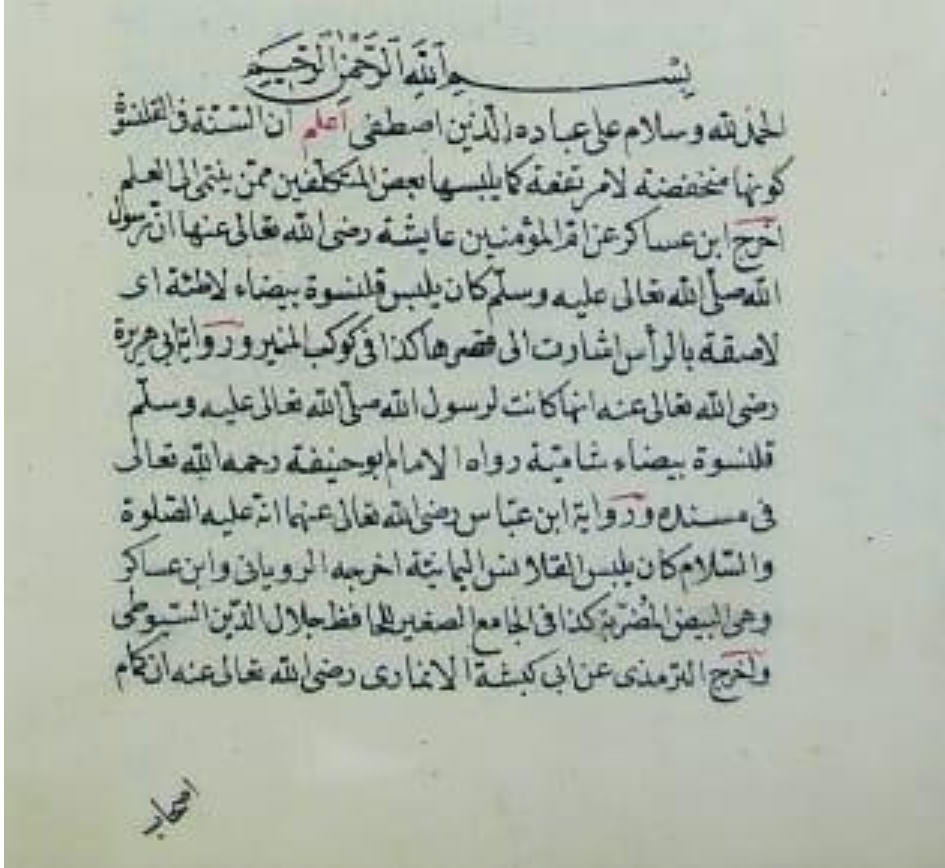 بسم الله الرحمن الرحيم
الحمد لله وسلام على عباده الذين اصطفى اعلم ان السنة فى القلنسوة
كونها منخفضة لا مرتفعة كما يلبسها بعض المتكلفين ممن ينتمى الى العلم
اخرج ابن عساكر عن ام المؤمنين عايشة رضى الله تعالى عنها ان رسول
الله صلى الله تعالى عليه وسلم كان يلبس قلنسوة بيضاء لاطئة اى
لاصقة بالرأس اشارت الى قصرها كذا فى كوكب المنير ورواية ابى هريرة
رضى الله تعالى عنه انها كانت لرسول الله صلى الله تعالى عليه وسلم
قلنسوة بيضاء شامية رواه الامام ابو حنيفة رحمه الله تعالى
فى مسنده ورواية ابن عباس رضى الله تعالى عنهما انه عليه الصلوة
والسلام كان يلبس القلانس اليمانية اخرجه الرويانى وابن عساكر
وهى البيض المضربة كذا فى الجامع الصغير للحافظ جلال الدين السيوطى
واخرج الترمذى عن ابى كبشة الانمارى رضى الله تعالى عنه ان كمام
اصحاب